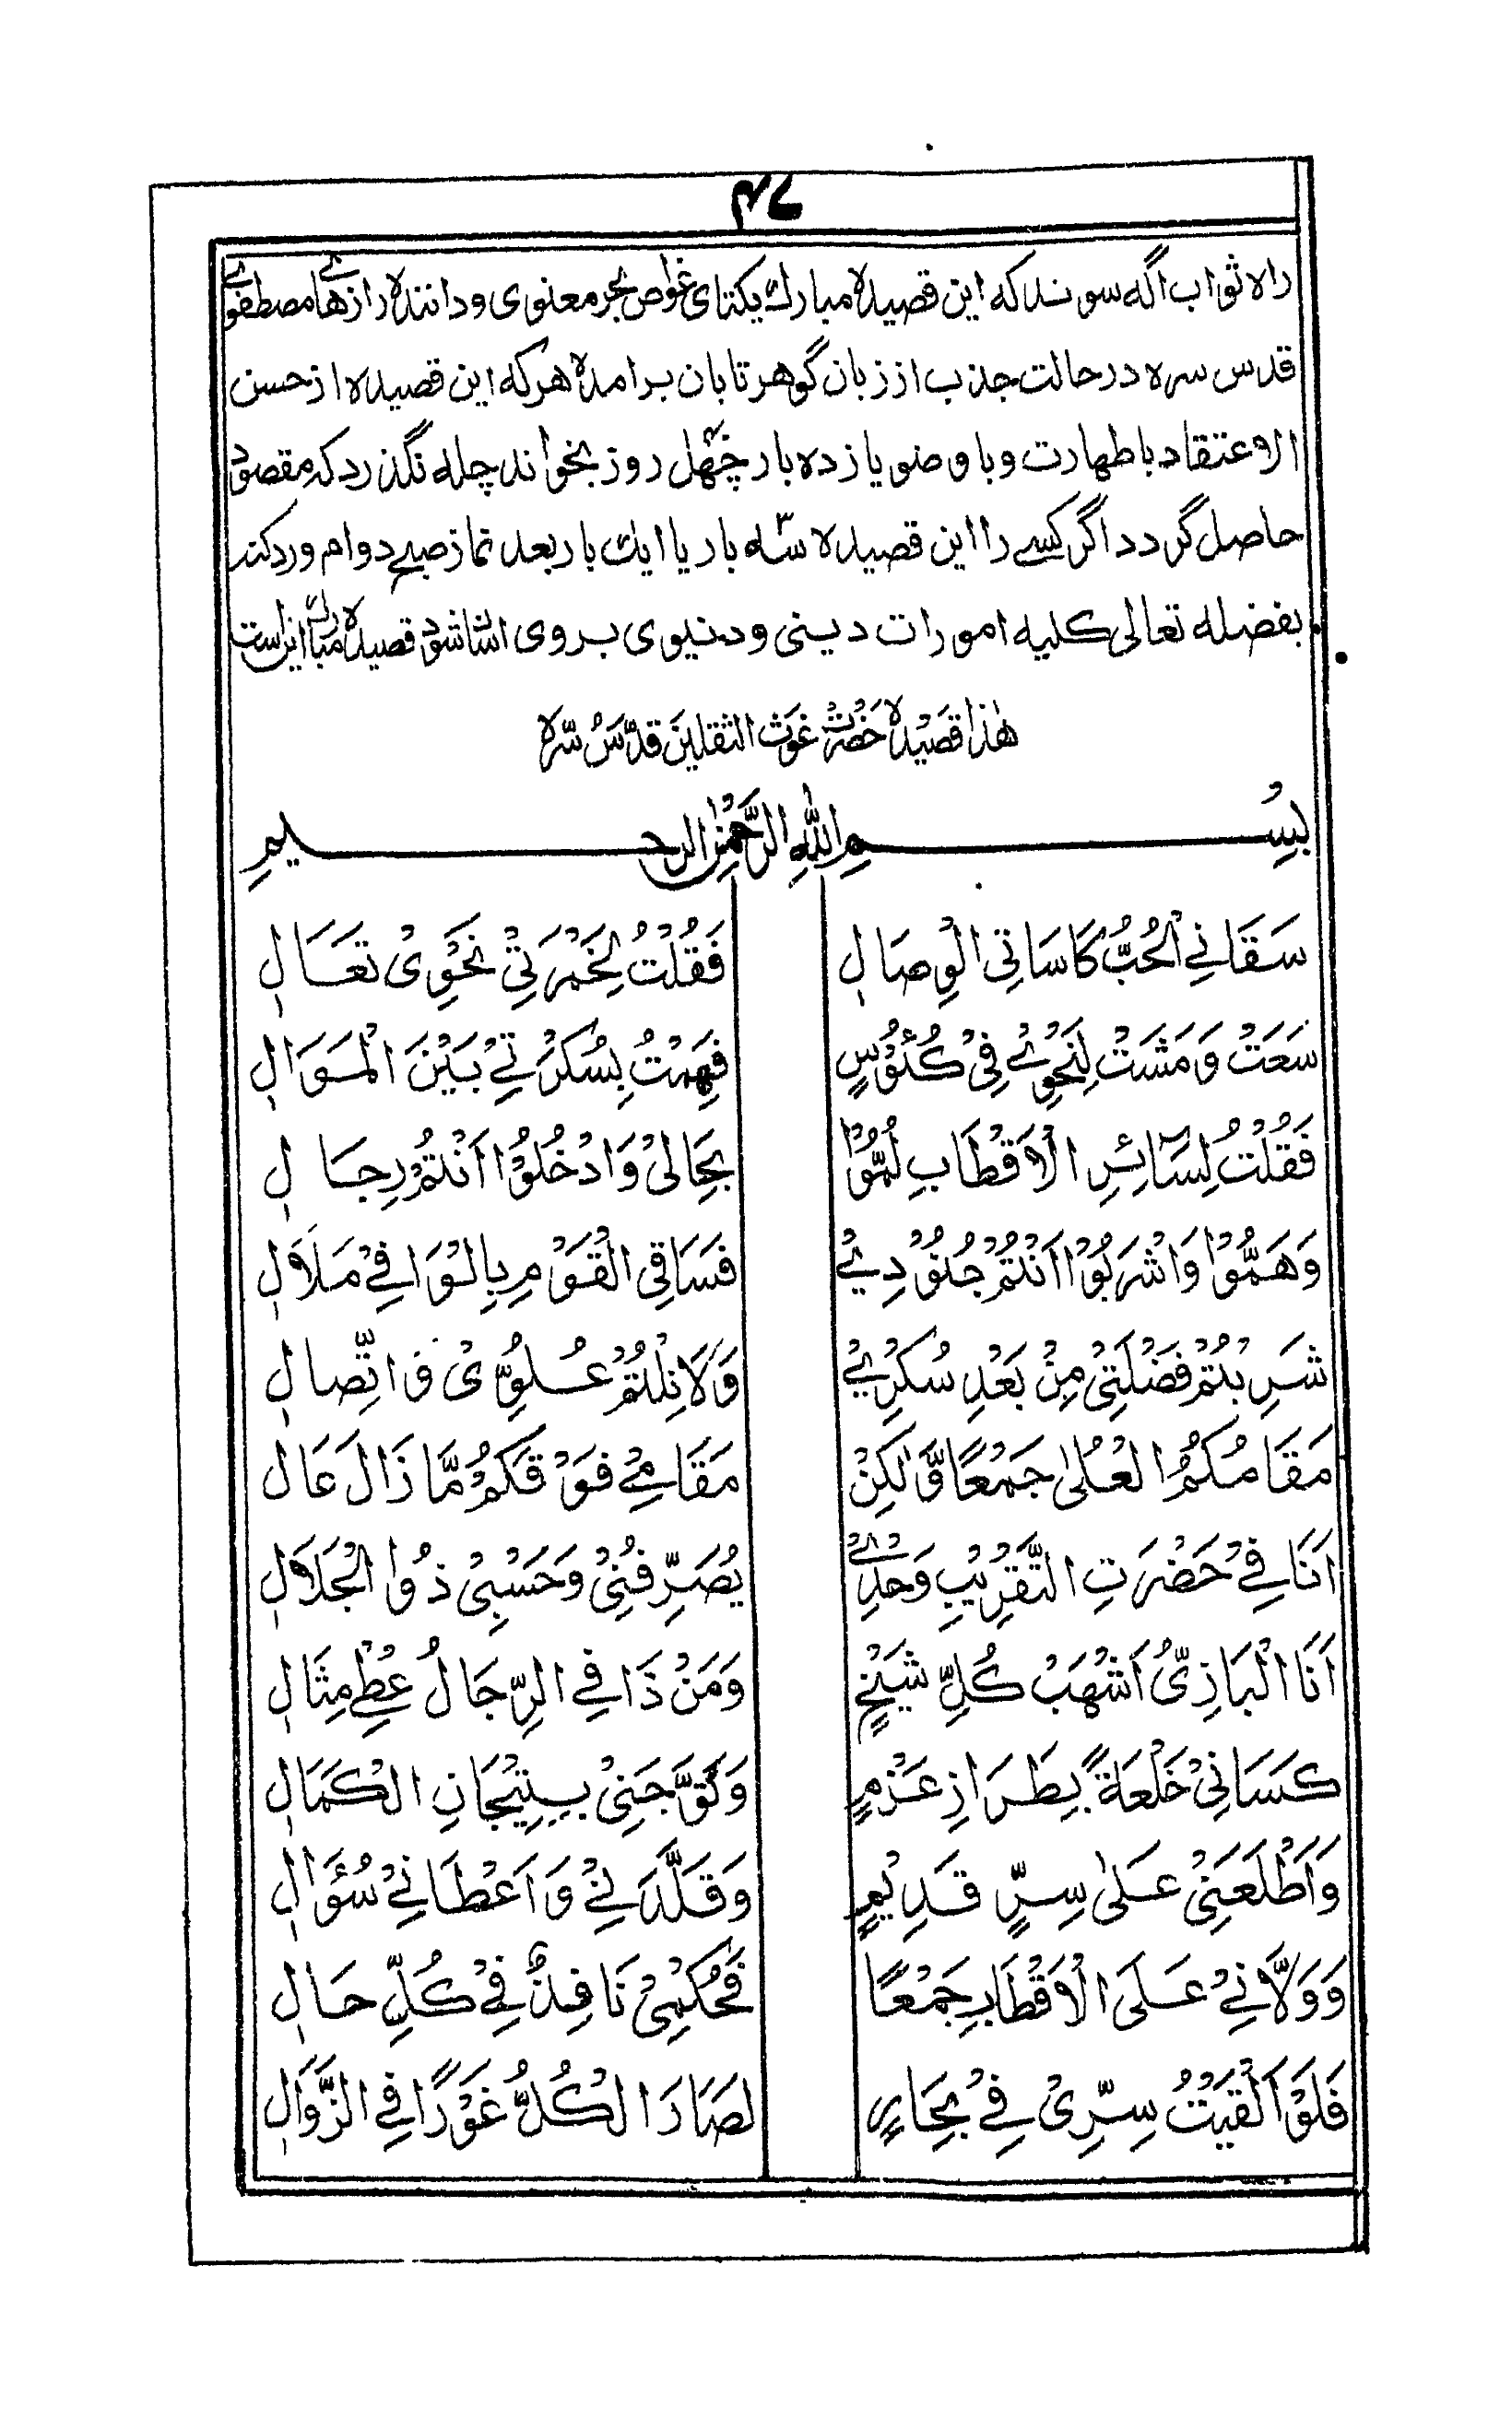 راه ثواب اگه سوند که این قصیده مبارك یکتای غواص بحر معنوی و داننده رازهائے مصطفوے
قدس سره در حالت جذب از زبان گوهر تابان برامده هر که این قصیده از حسن
الاعتقاد با طهارت و باوضو یازده بار چهل روز بخواند چله نگذرد که مقصود
حاصل گردد اگر کسے را این قصیده سه بار یا ایك بار بعد نماز صبح دوام ورد کند
بفضله تعالی کلیه امورات دینی و دنیوی بروی اسان شود قصیده مبارك این است
هٰذا قَصِیْدَه حَضْرَتْ غَوَث الثقلین قدَّسَ سِّرَه
بِسْمِ اللّٰهِ الرَّحْمٰنِ الرحیمِ
سَقَانِے الْحُبُّ كَاسَاتِی الْوِصَالِ فَقُلْتُ لِخَمْرَتِیْ نَحْوِیْ تَعَالِ
سَعَتْ وَمَشَتْ لِنَحْوِےْ فِیْ كُئُوْسٍ فَهِمْتُ بِسُكْرَتِےْ بَیْنَ الْمَوَالِ
فَقُلْتُ لِسَآئِرِ الْاَقْطَابِ لُمُّوْا بِحَالِیْ وَادْخُلُوْا اَنْتُمْ رِجَالِ
وَهَمُّوْا وَاشْرَبُوْا اَنْتُمْ جُنُوْدِےْ فَسَاقِی الْقَوْمِ بِالْوَافِےْ مَلَالِ
شَرِبْتُمْ فَضْلَتِیْ مِنْ بَعْدِ سُكْرِےْ وَلَا نِلْتُمْ عُلُوِّیْ وَاتِّصَالِ
مَقَامُكُمُ الْعُلٰی جَمْعًا وَّلٰكِنْ مَقَامِےْ فَوْقَكُمْ مَّا زَالَ عَال
اَنَا فِےْ حَضْرَتِ التَّقْرِیْبِ وَحْدِےْ یُصَرِّفُنِیْ وَحَسْبِیْ ذُوا الْجَلَالِ
اَنَا الْبَازِیُّ اَشْهَبُ كُلِّ شَیْخٍ وَمَنْ ذَا فِے الرِّجَالُ عُطِےْ مِثَالِ
كَسَانِیْ خَلْعَةً بِطَرَازِ عَزْمٍ وَتَوَّجَنِیْ بِتِیْجَانِ الْكَمَالِ
وَاَطْلَعَنِیْ عَلٰی سِرٍّ قَدِیْمٍ وَقَلَّدَنِےْ وَاَعْطَانِےْ سُؤَالِ
وَوَلَّانِےْ عَلَی الْاَقْطَابِ جَمْعًا فَحُكْمِیْ نَافِذٌ فِےْ كُلِّ حَالِ
فَلَوْ اَلْقَیْتُ سِرِّیْ فِےْ بِحَارٍ لَصَارَ الْكُلُّ غَوْرًا فِے الزَّوَالِ